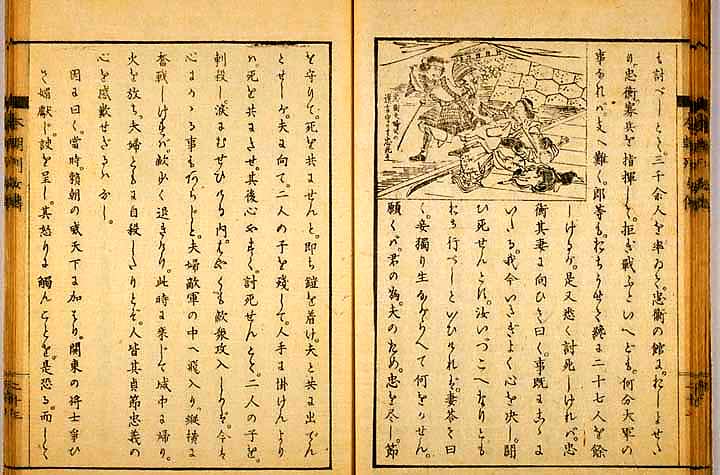 も討べしとて。三千余人を率ゐて。忠衡の館え。おしよせけ
り。忠衡。寡兵を指揮して。拒ぎ戦ふといへども。何分大軍の
事なれバ。支へ難く。郎等も。おちうせて。二十七人を餘
しけるが。是又悉く討死しけれバ。忠
衡其妻に向ひて曰く。事既にこゝに
いたる。我今いさぎよく心を決し。闘
ひ死せんとす。汝いづこへなりとも
おち行べしといひければ。妻答て曰
く。妾獨り生ながらへて何をかせん。
願くバ。君の為。夫のため。忠を尽し。節
を守りて。死を共にせんと。即ち鎧を着け。夫と共に出でん
とせしが。夫に向て。二人の子を殘して。人手に掛けんより
ハ。死を共にさせ。其後心やすく。討死せんとて。二人の子を。
刺殺し。涙にむせびける内。はやくも敵衆攻入しかバ。今は
心にかゝる事もあらじと。夫婦敵軍の中へ飛入り。縦横に
奮戦しければ。敵少く退きたり。此時に乗じて城中に帰り。
火を放ち。夫婦ともに自殺したりとぞ。人皆其貞節忠義の
心を感歎せざるハなし。
因に曰く。當時。頼朝の威天下に加はり。関東の将士争ひ
て媚獻じ。諛を呈し。其怒りに觸んことを。是恐る。而して
本朝列女傳